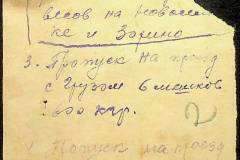 весов на Новосил
ке и Зорино
3. Пропуск на проезд
с грузом 6 мешков
600 кгр.
2
Пропуск на проезд